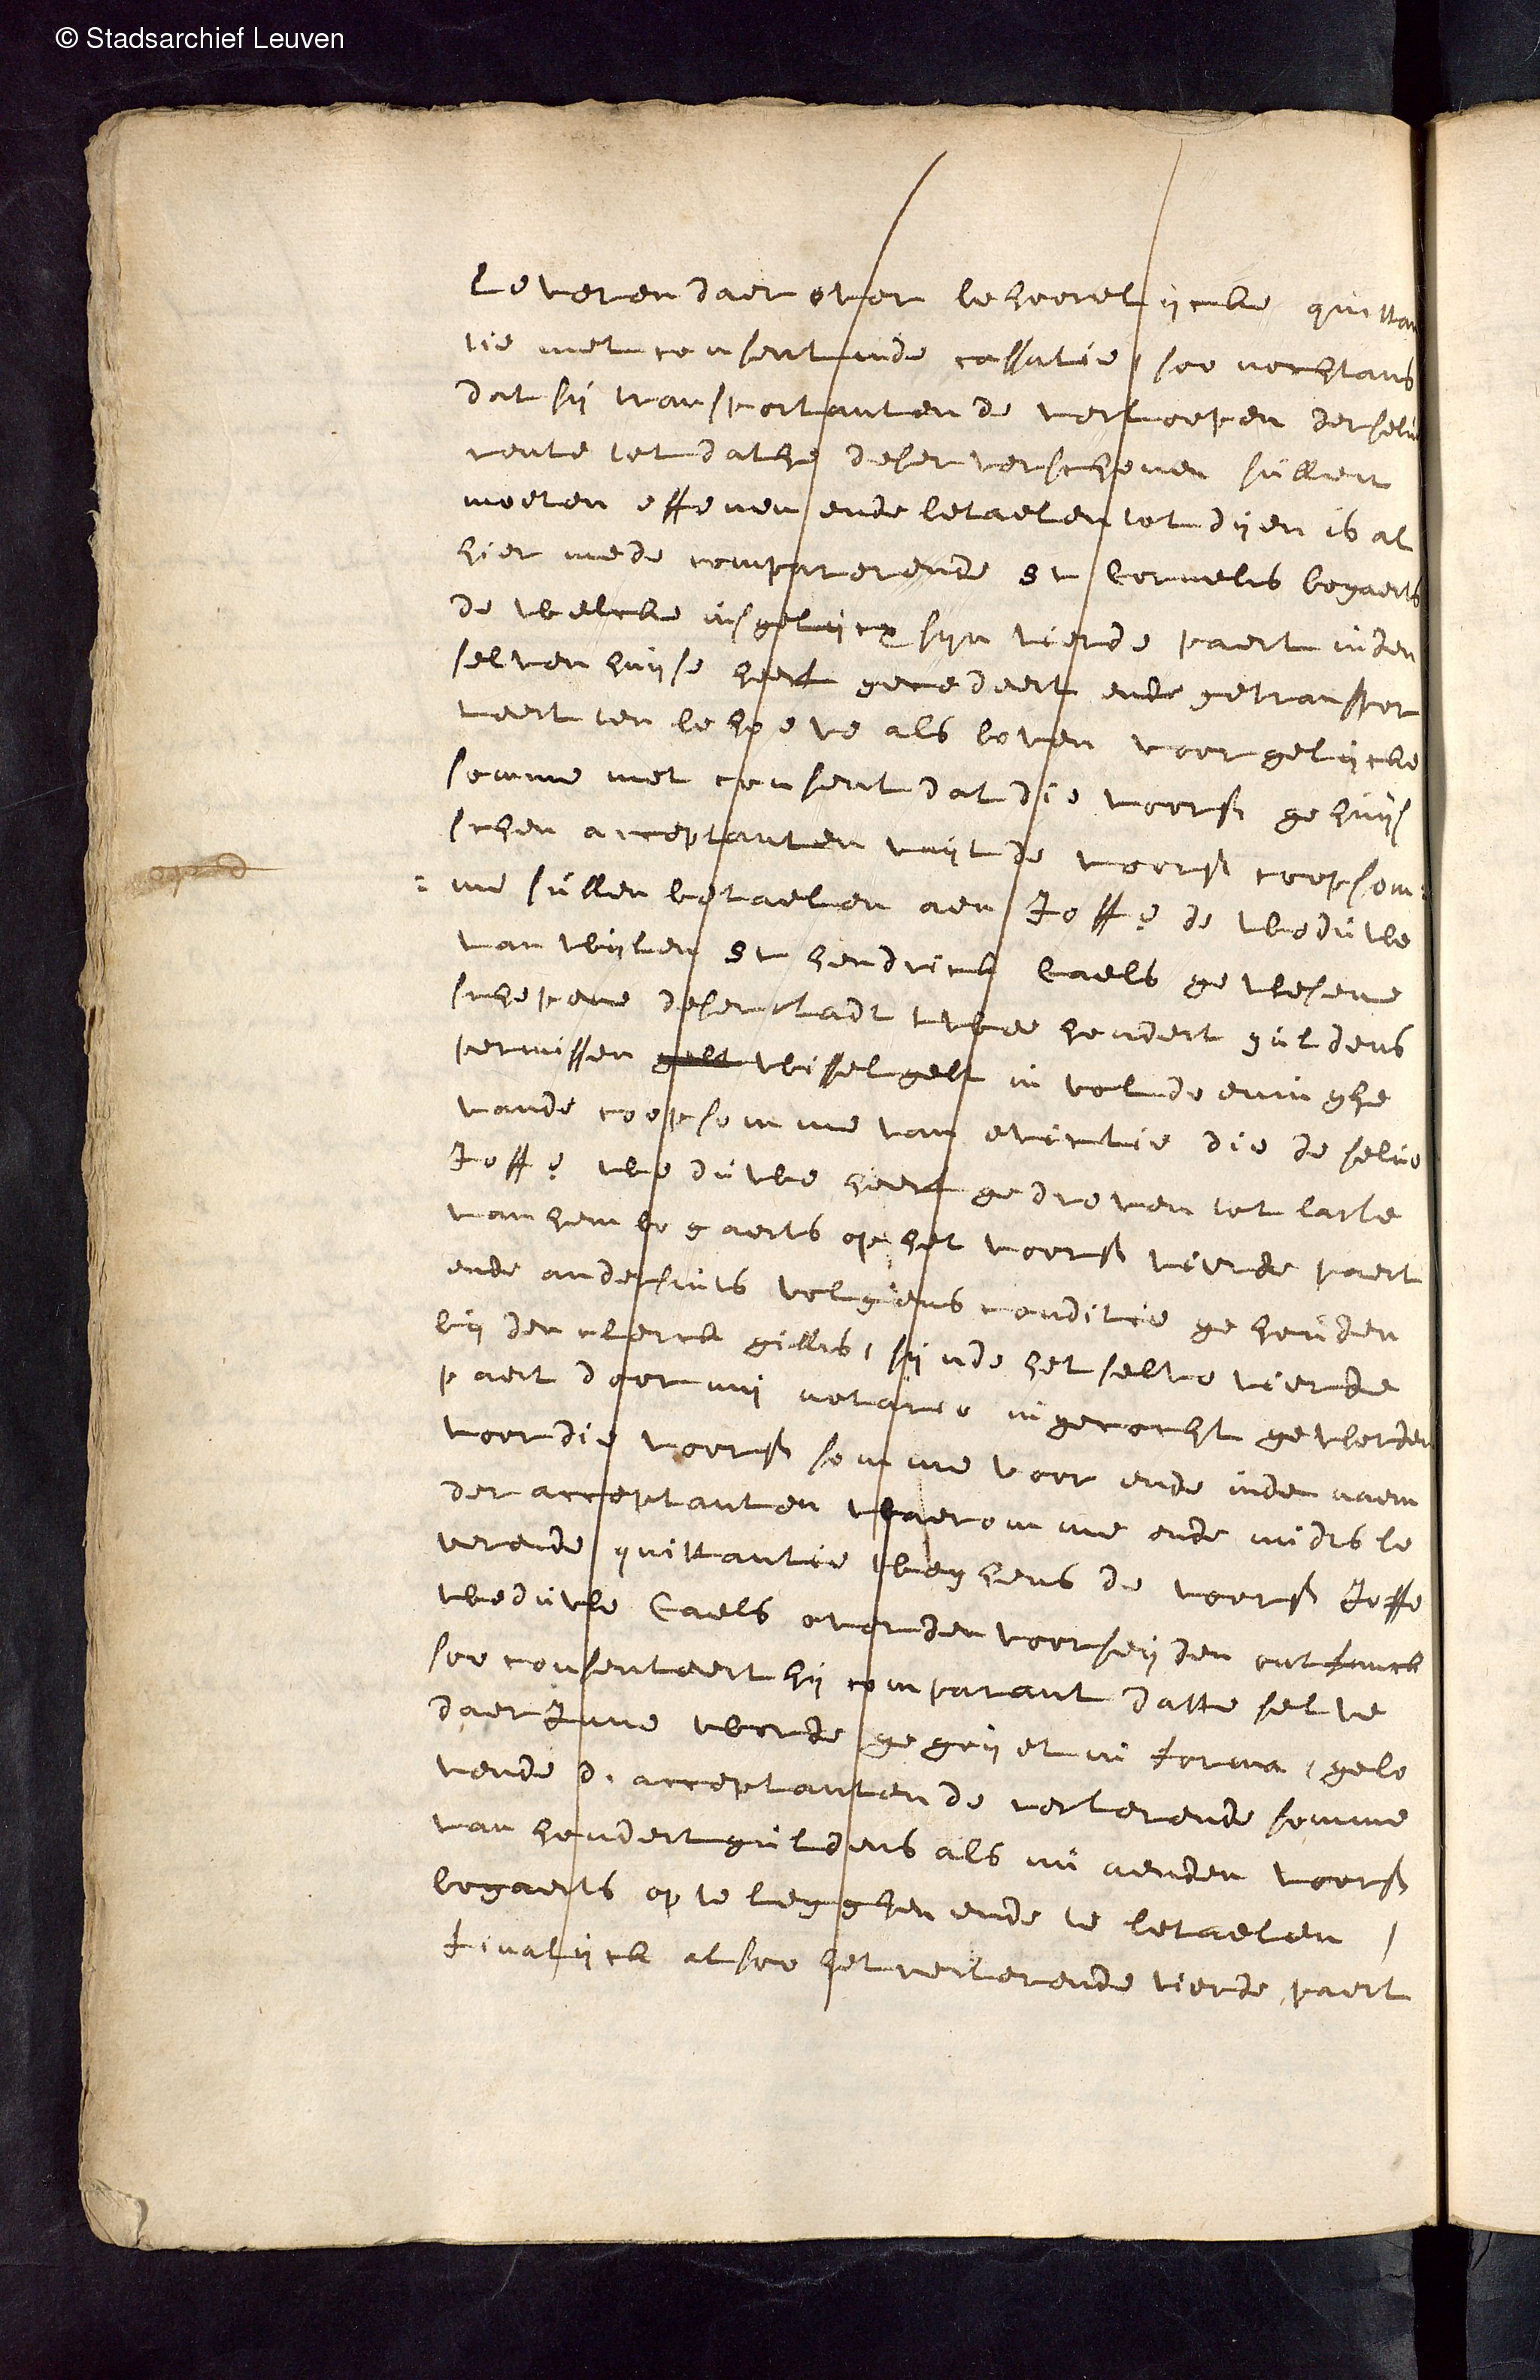 © Stadsarchief Leuven
leveren daer over behoorelijcke quittan
tie met consent inde cassatie, soo nochtans
dat sij transportanten de verloopen der selve
rente tot dathe deser verschenen sullen
moeten effenen ende betaelen tot dijen is al
hier mede comparerende Sr Cornelis bogaerts
de welcke insgelijcx sijn vierde paert inden
selven huijse heeft gecedeert ende getranspor
teert ten behoeve als boven voor gelijcke
somme met consent dat die voors gehuijs
schen acceptanten vuijt de voors coopsom:
:me sullen betaelen aen Joffe de weduwe
van wijlen Sr hendrick Caels gewesene
schepene deser stadt twee hondert guldens
permissen gelt wisselgelt in voldoeninghe
vande coopsomme van evictie die de selve
Joffe weduwe heeft gedreven tot laste
van hem bogaerts op het voors vierde paert
ende andersints volgens conditie gehouden
bij den clerck gillis, sijnde het selve vierde
paert door mij notario ingecocht geworden
voor die voors somme voor ende inden naem
der acceptanten waeromme ende midts le
verende quittantie weghens de voors Joffe
weduwe Caels over den voorseijden ontfanck
soo consenteert hij comparant datte selve
daer Inne worde gegoijet in forma, gelo
vende d. acceptanten de resterende somme
van hondert guldens als nu aenden voors
bogaerts op te legghen ende te betaelen /
finalijck alsoo het resterende vierde paert